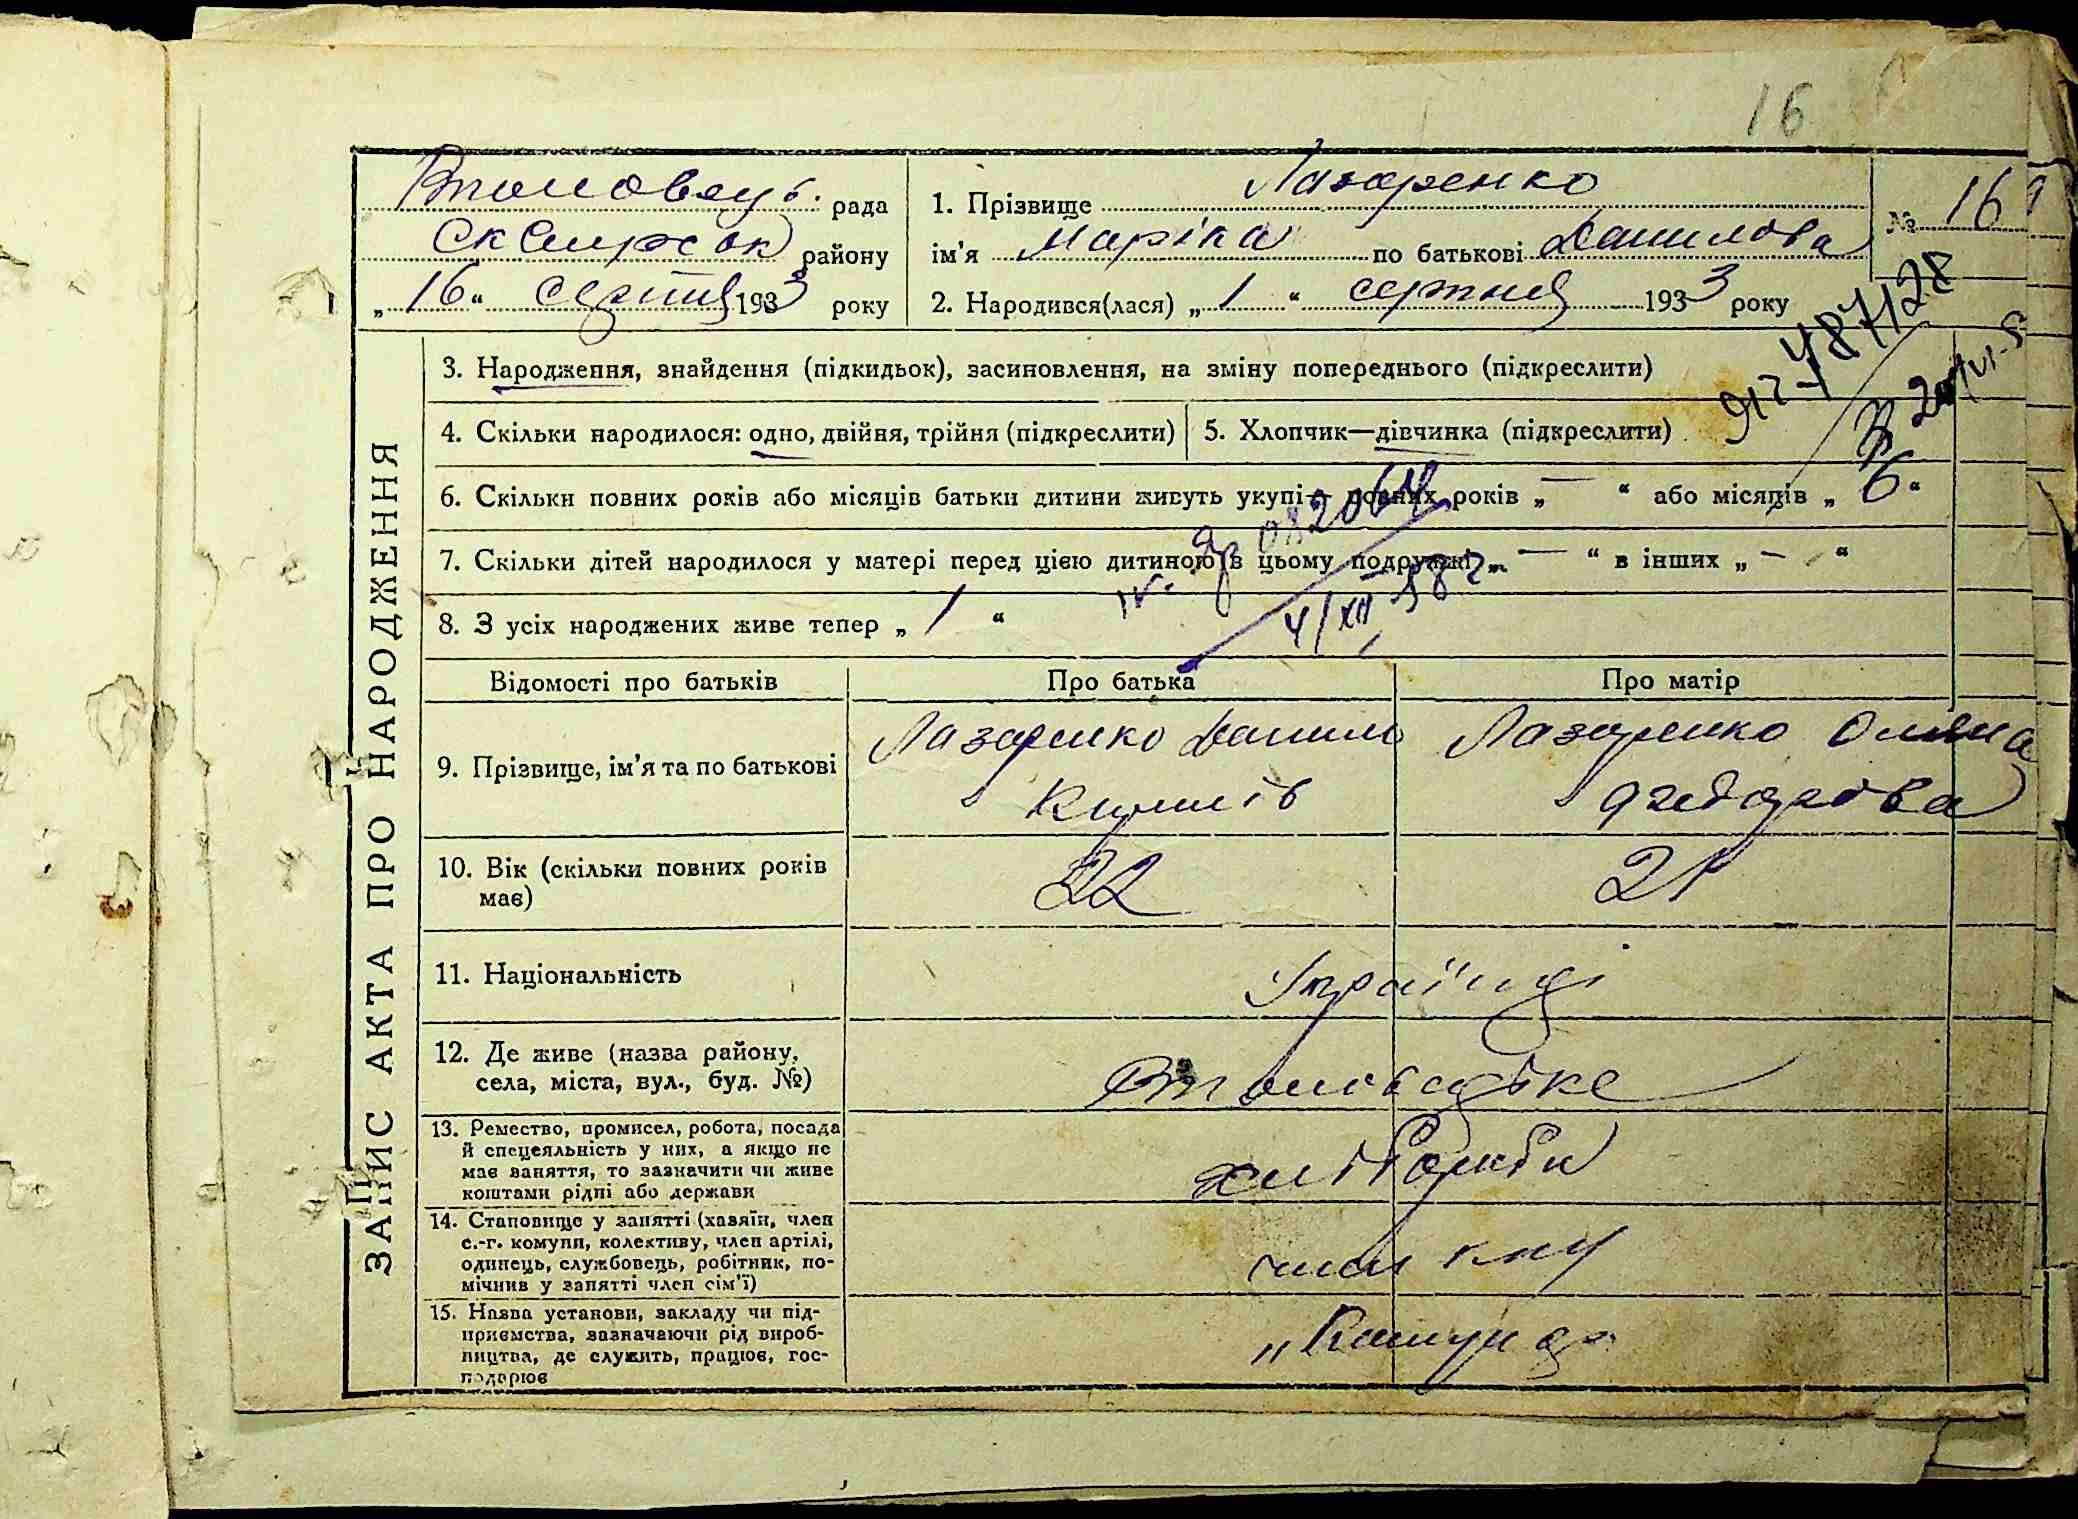 16
рада
Сквирськ району
„ 16 “ серпня 1933 року
1. Прізвище Лазаренко
ім’я Маріка по батькові Данилова
2. Народився(лася) „ 1 “ серпня 1933 року
№ 16
ЗАПИС АКТА ПРО НАРОДЖЕННЯ
3. Народження, знайдення (підкидьок), засиновлення, на зміну попереднього (підкреслити)
4. Скільки народилося: одно, двійня, трійня (підкреслити)
5. Хлопчик—дівчинка (підкреслити)
6. Скільки повних років або місяців батьки дитини живуть укупі— повних років „ — “ або місяців „ 6 “
7. Скільки дітей народилося у матері перед цією дитиною в цьому подружжі „ — “ в інших „ — “
8. З усіх народжених живе тепер „ 1 “
4/XII-58г.
Відомості про батьків
Про батька
Про матір
9. Прізвище, ім’я та по батькові
Лазаренко Данило
Лазаренко Оляна
10. Вік (скільки повних років
має)
22
21
11. Національність
Українці
12. Де живе (назва району,
села, міста, вул., буд. №)
13. Ремество, промисел, робота, посада
й спецеяльність у них, а якщо не
має заняття, то зазначити чи живе
коштами рідні або держави
хлібороби
14. Становище у занятті (хазяїн, член
с.-г. комуни, колективу, член артілі,
одинець, службовець, робітник, по-
мічник у занятті член сім’ї)
члени
15. Назва установи, закладу чи під-
приємства, зазначаючи рід вироб-
ництва, де служить, працює, гос-
подарює